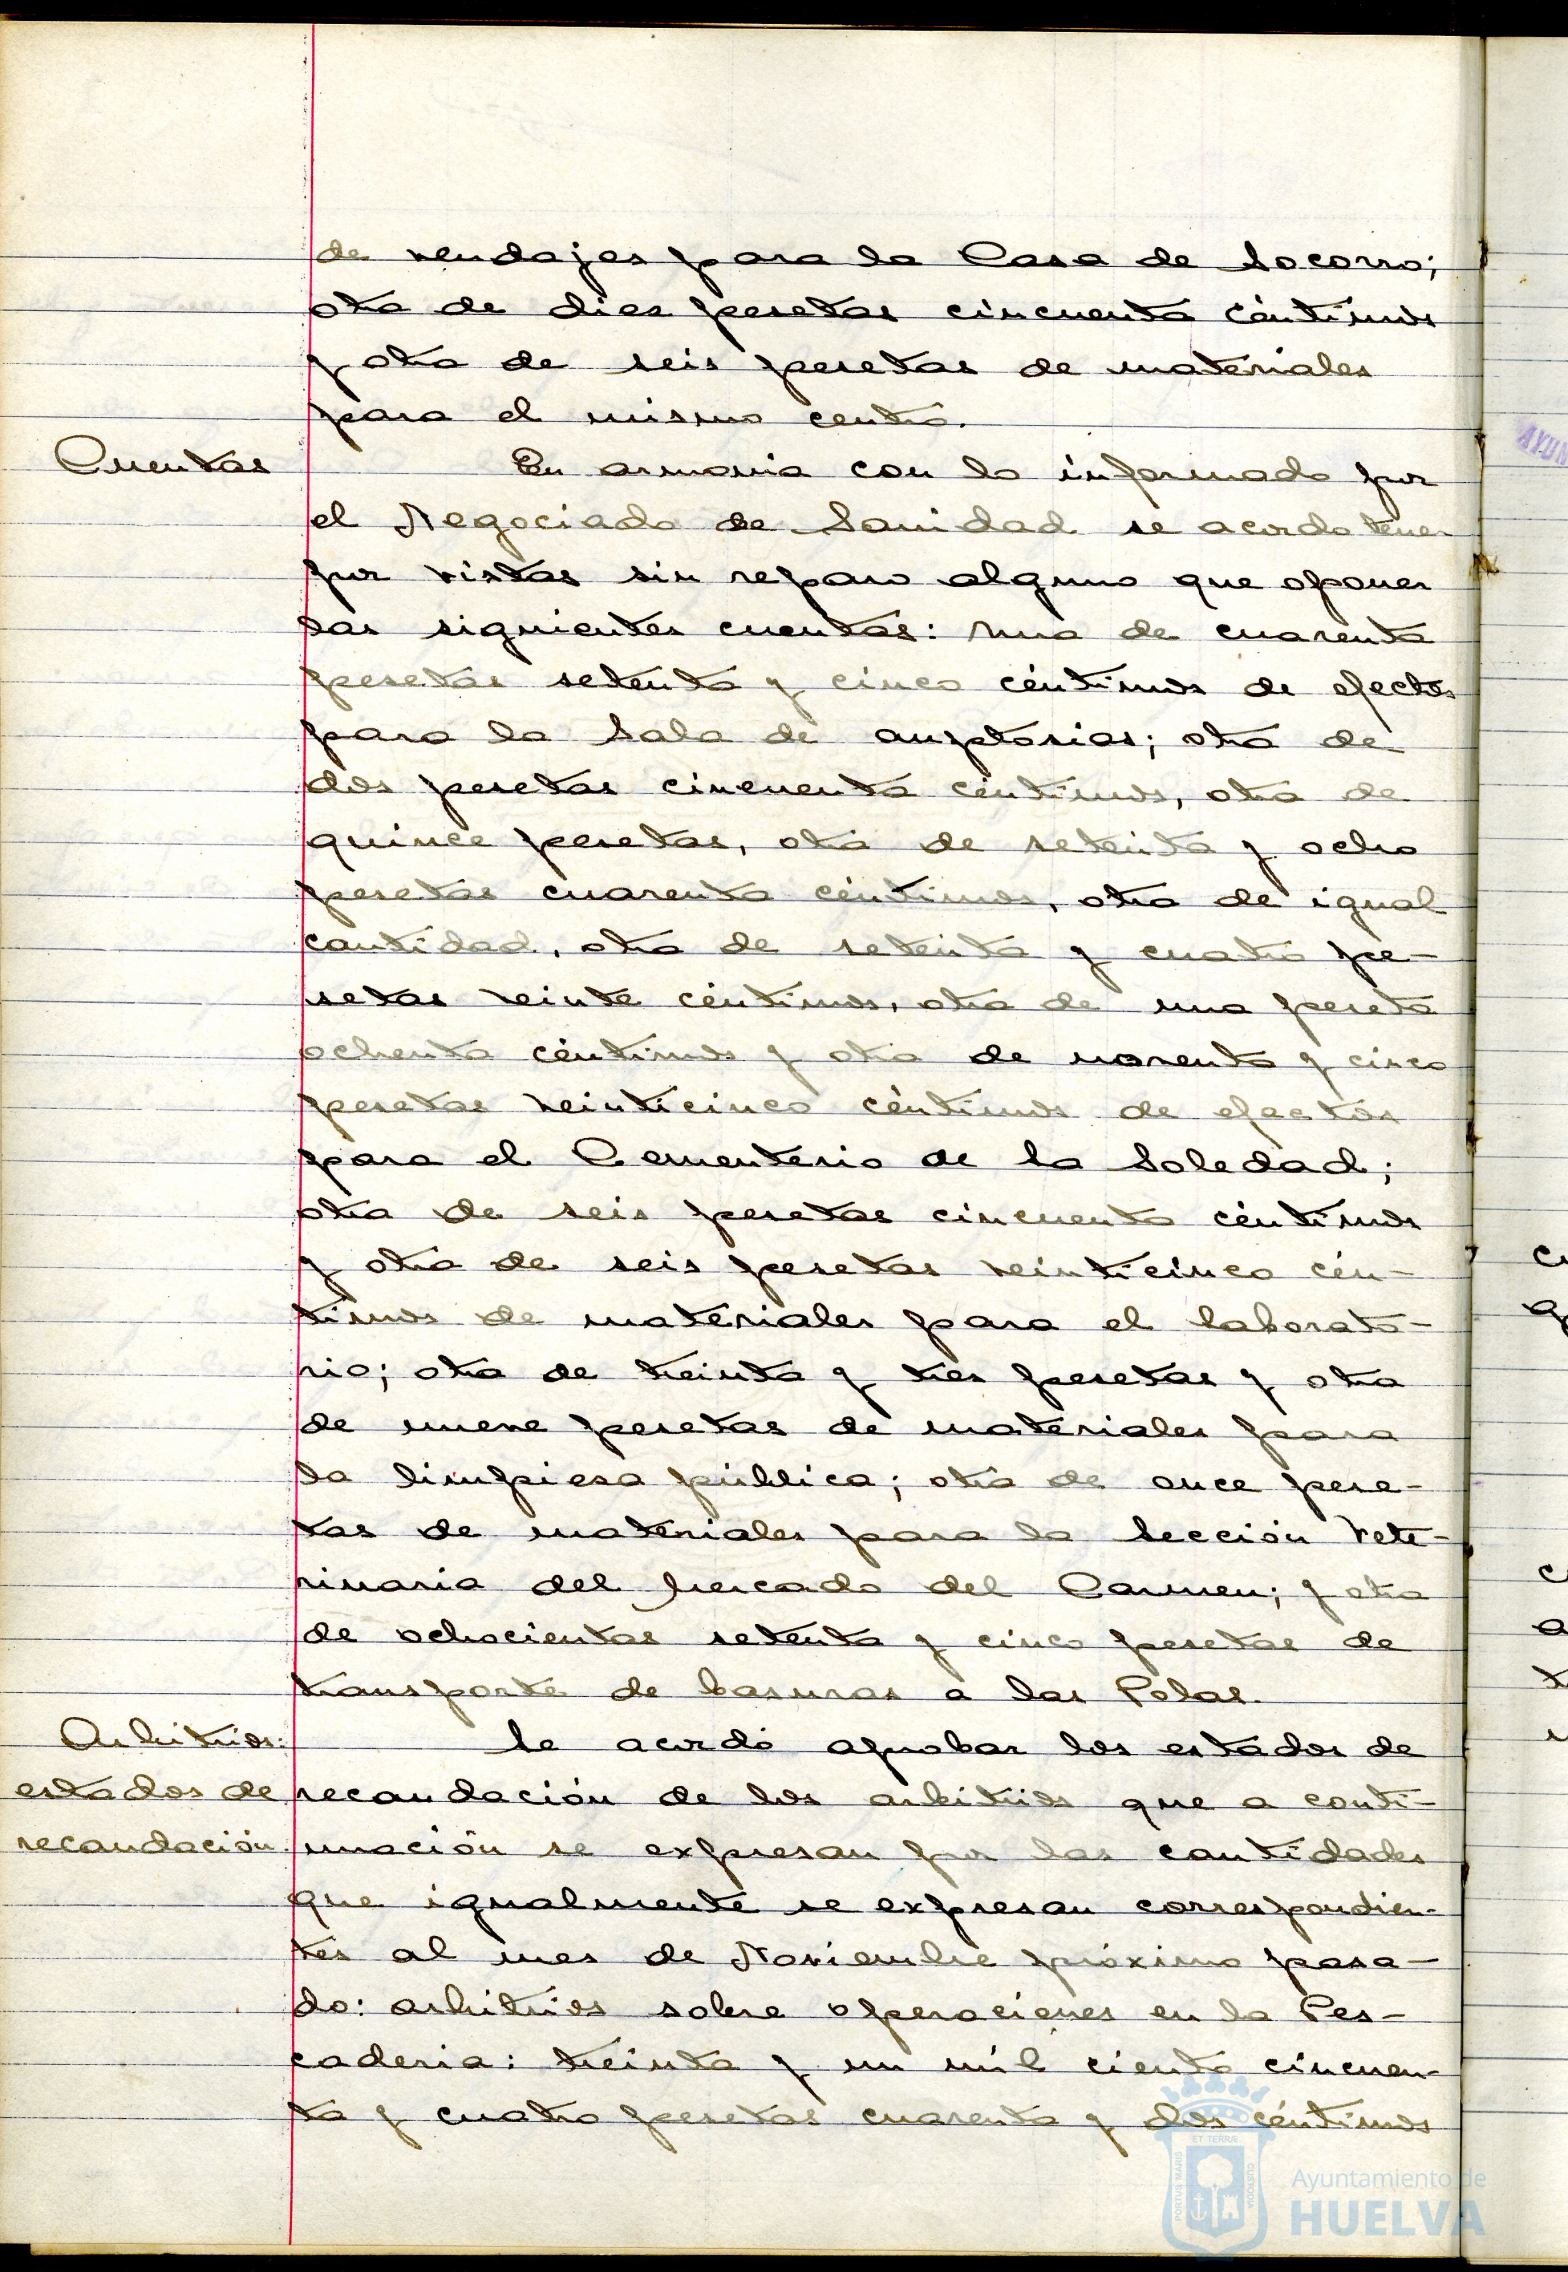 de vendajes para la Casa de Socorro;
otra de diez pesetas cincuenta céntimos
y otra de seis pesetas de materiales
para el mismo centro.
Cuentas
En armonia con lo informado por
el Negociado de Sanidad se acordo tener
por vistas sin reparo alguno que oponer
las siguientes cuentas: una de cuarenta
pesetas setenta y cinco céntimos de efectos
para la Sala de autopsias; otra de
dos pesetas cincuenta céntimos, otra de
quince pesetas, otra de setenta y ocho
pesetas cuarenta céntimos, otra de igual
cantidad, otra de setenta y cuatro pe-
setas veinte céntimos, otra de una peseta
ochenta céntimos y otra de noventa y cinco
pesetas veinticinco céntimos de efectos
para el Cementerio de la Soledad;
otra de seis pesetas cincuenta céntimos
y otra de seis pesetas veinticinco cén-
timos de materiales para el laborato-
rio; otra de treinta y tres pesetas y otra
de nueve pesetas de materiales para
la limpieza pública; otra de once pese-
tas de materiales para la Sección Vete-
rinaria del Mercado del Carmen; y otra
de ochocientas setenta y cinco pesetas de
transporte de basuras a las Polas.
Arbitrios:
estados de
recaudación.
Se acordó aprobar los estados de
recaudación de los arbitrios que a conti-
nuación se expresan por las cantidades
que igualmente se expresan correspondien-
tes al mes de Noviembre próximo pasa-
do: arbitrios sobre operaciones en la Pes-
caderia: treinta y un mil ciento cincuen-
ta y cuatro pesetas cuarenta y dos céntimos
PORTUS MARIS
ET TERRÆ
CUSTODIA
Ayuntamiento de
HUELVA